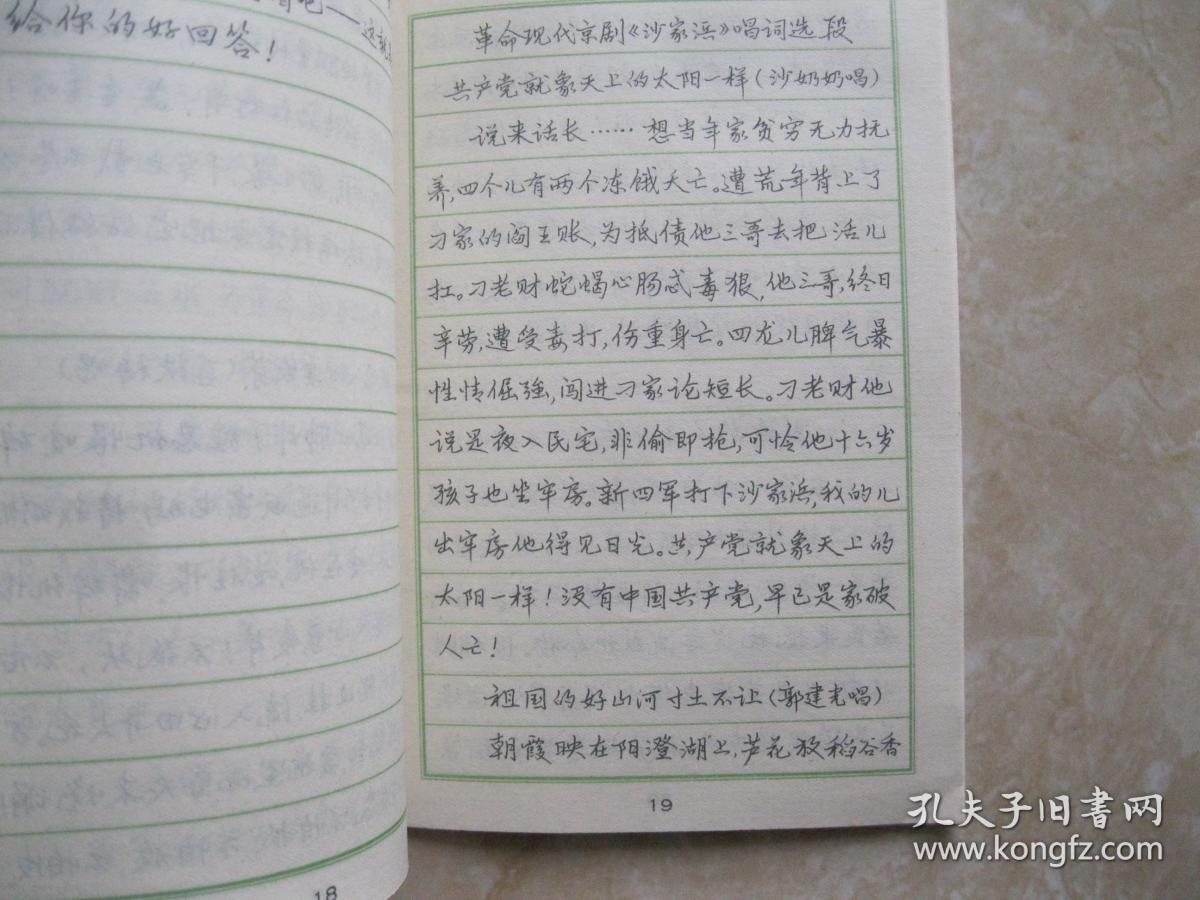 给你的好回答！
革命现代京剧《沙家浜》唱词选段
共产党就象天上的太阳一样（沙奶奶唱）
说来话长……想当年家贫穷无力抚
养，四个儿有两个冻饿夭亡。遭荒年背上了
刁家的阎王账，为抵债他三哥去把活儿
扛。刁老财蛇蝎心肠忒毒狠，他三哥，终日
辛劳，遭受毒打，伤重身亡。四龙儿脾气暴
性情倔强，闯进刁家论短长。刁老财他
说是夜入民宅，非偷即抢，可怜他十六岁
孩子也坐牢房。新四军打下沙家浜，我的儿
出牢房他得见日光。共产党就象天上的
太阳一样！没有中国共产党，早已是家破
人亡！
祖国的好山河寸土不让（郭建光唱）
朝霞映在阳澄湖上，芦花放稻谷香
19
18
孔夫子旧书网
www.kongfz.com